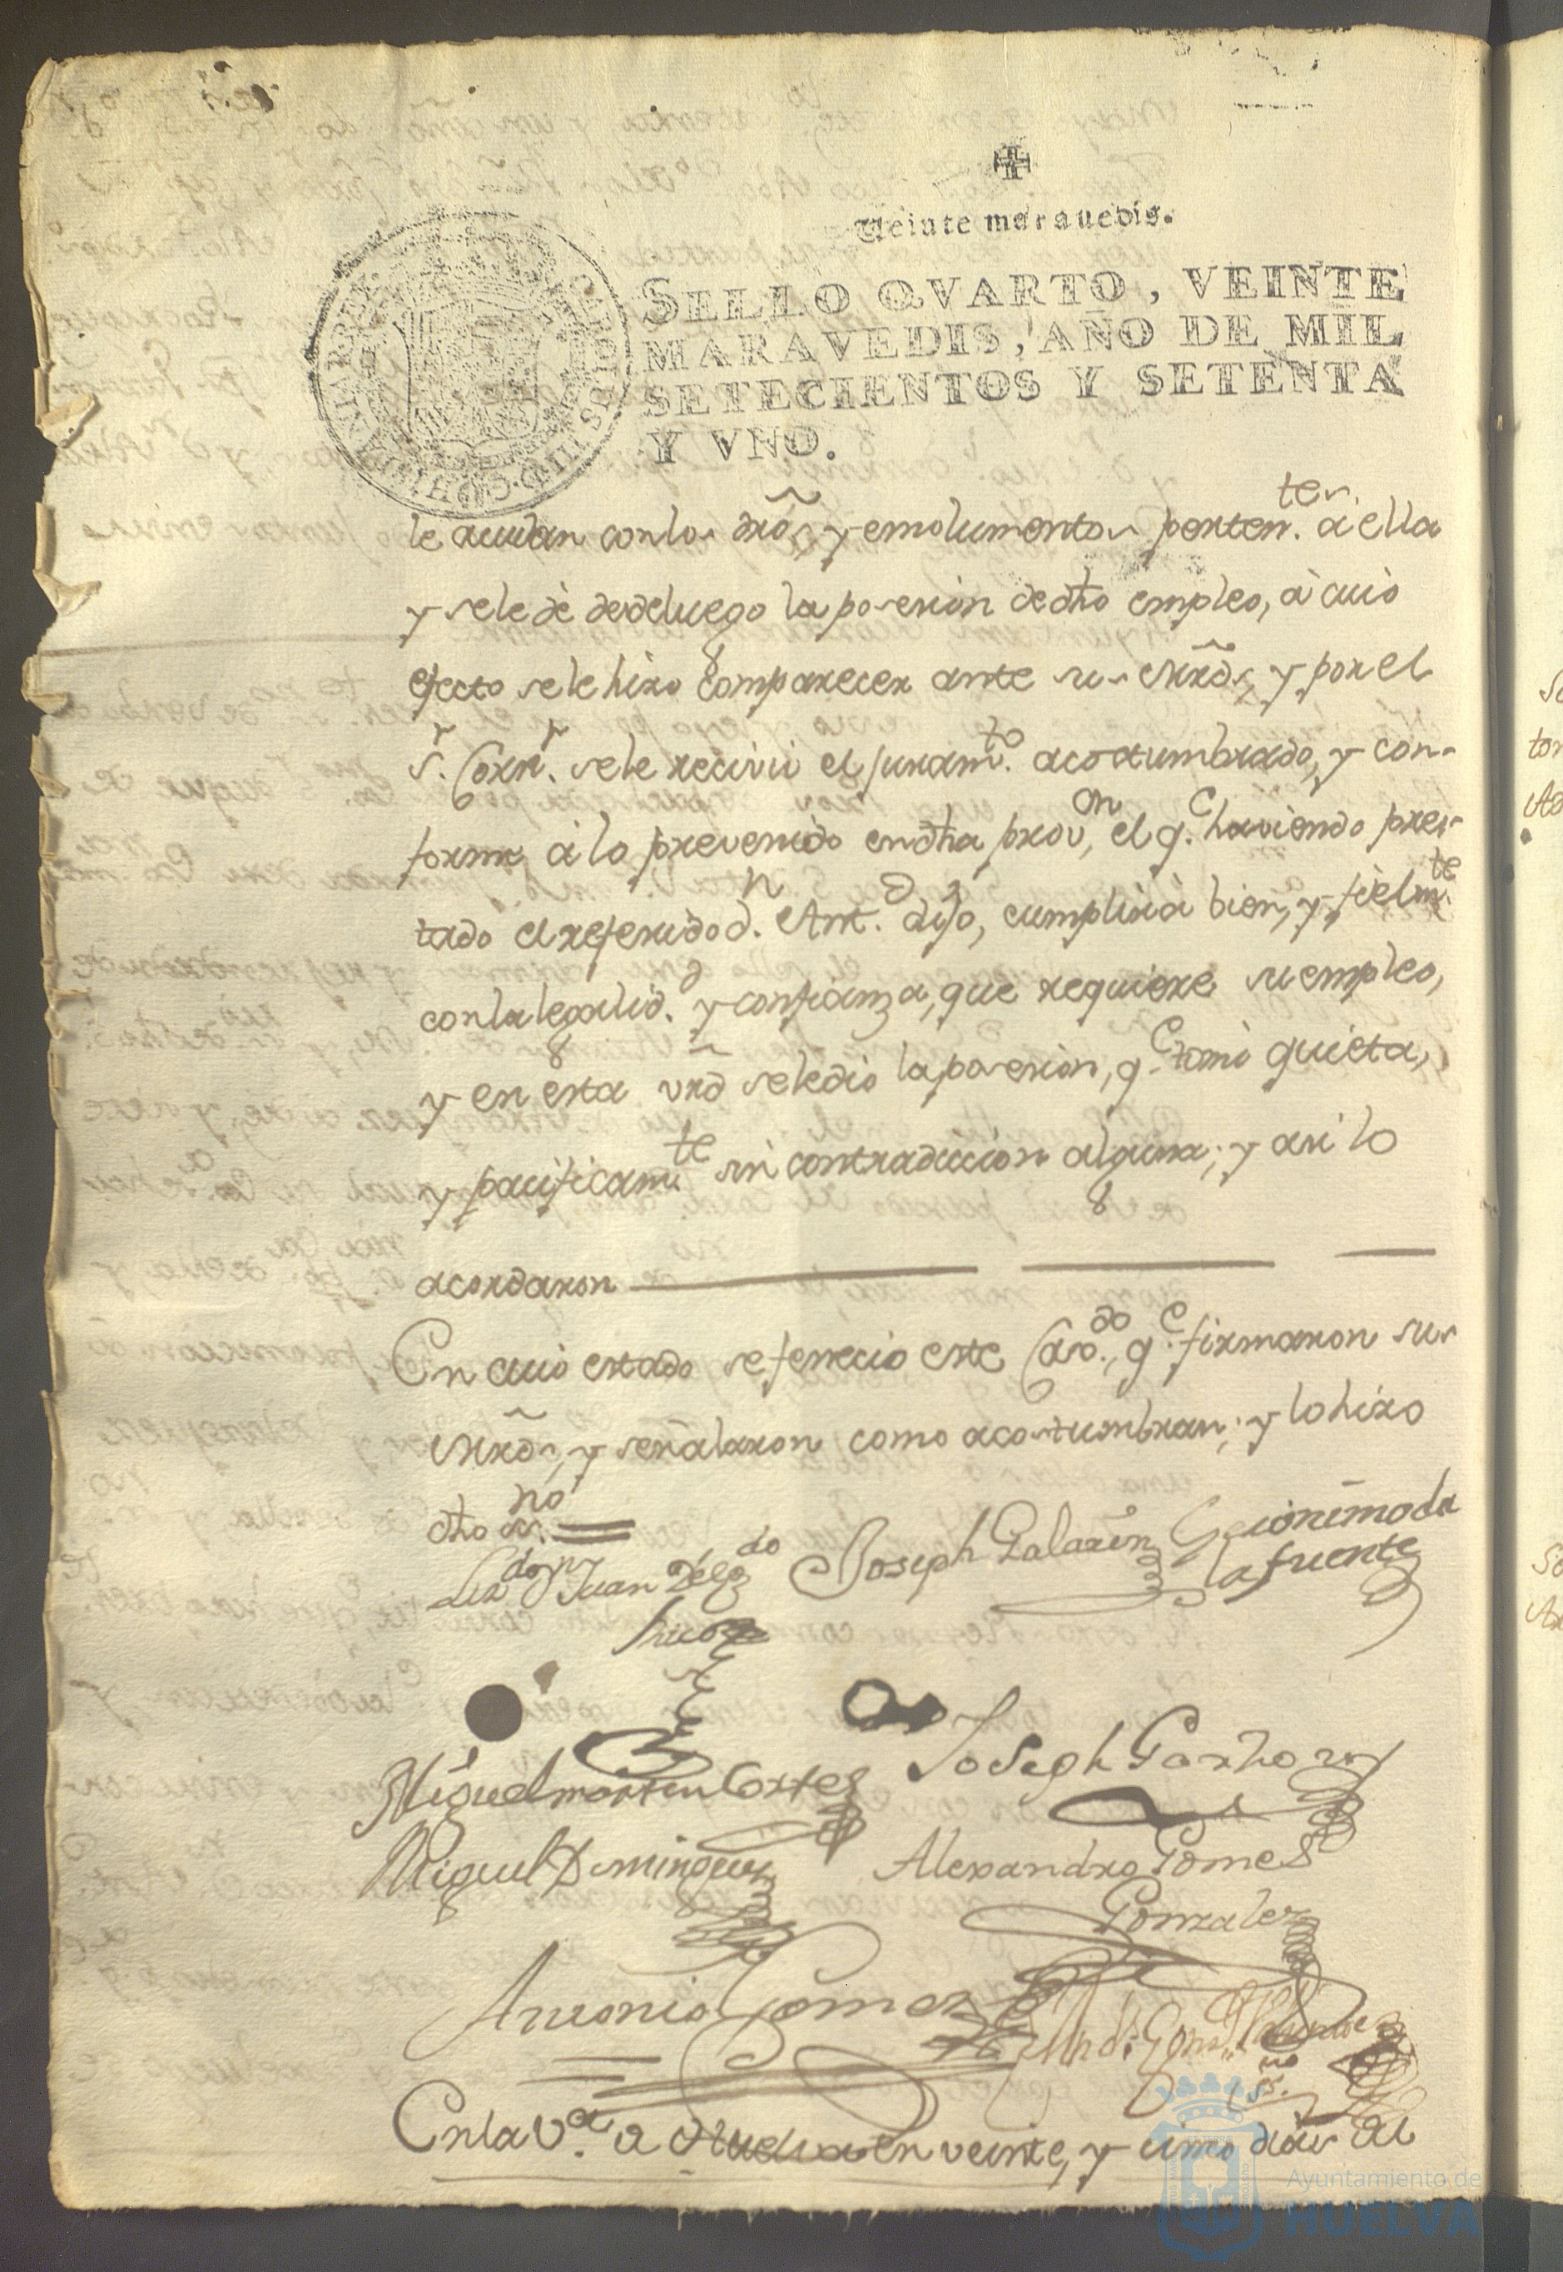 Veinte maravedis.
SELLO QVARTO, VEINTE
MARAVEDIS, AÑO DE MIL
SETECIENTOS Y SETENTA
Y VNO.
le acudan con los dros, y emolumentos perten.tes à ella
y se le dè desde luego la posesion de dho empleo, à cuio
efecto se le hizo comparecer ante sus Mrds, y por el
S.r Corr.r se le recivió el juram.to acostumbrado, y con-
forme à lo prevenido en dha prov.on, el q.e haviendo pres-
tado el referido d.n Ant.o dijo, cumplirà bien, y fielm.te
con la legalid.d y confianza, que requiere su empleo,
y en esta vrd se le dió la posesion, q.e tomó quieta,
y pacificam.te sin contradiccion alguna; y asi lo
acordaron
En cuio estado se fenecio este Cav.do, q.e firmaron sus
Mrds, y señalaron como acostumbran; y lo hizo
dho ss.no
Liz.do Dn Juan Delg.do Joseph Galazin Geronimo da
la fuente
Miguel martin Cortes Joseph Garzho
Miguel Dominguez Alexandro Gomes
Gonzalez
Antonio Gomez
ss.no
En la V.a de Huelva en veinte, y cinco dias de
Ayuntamiento de
HUELVA